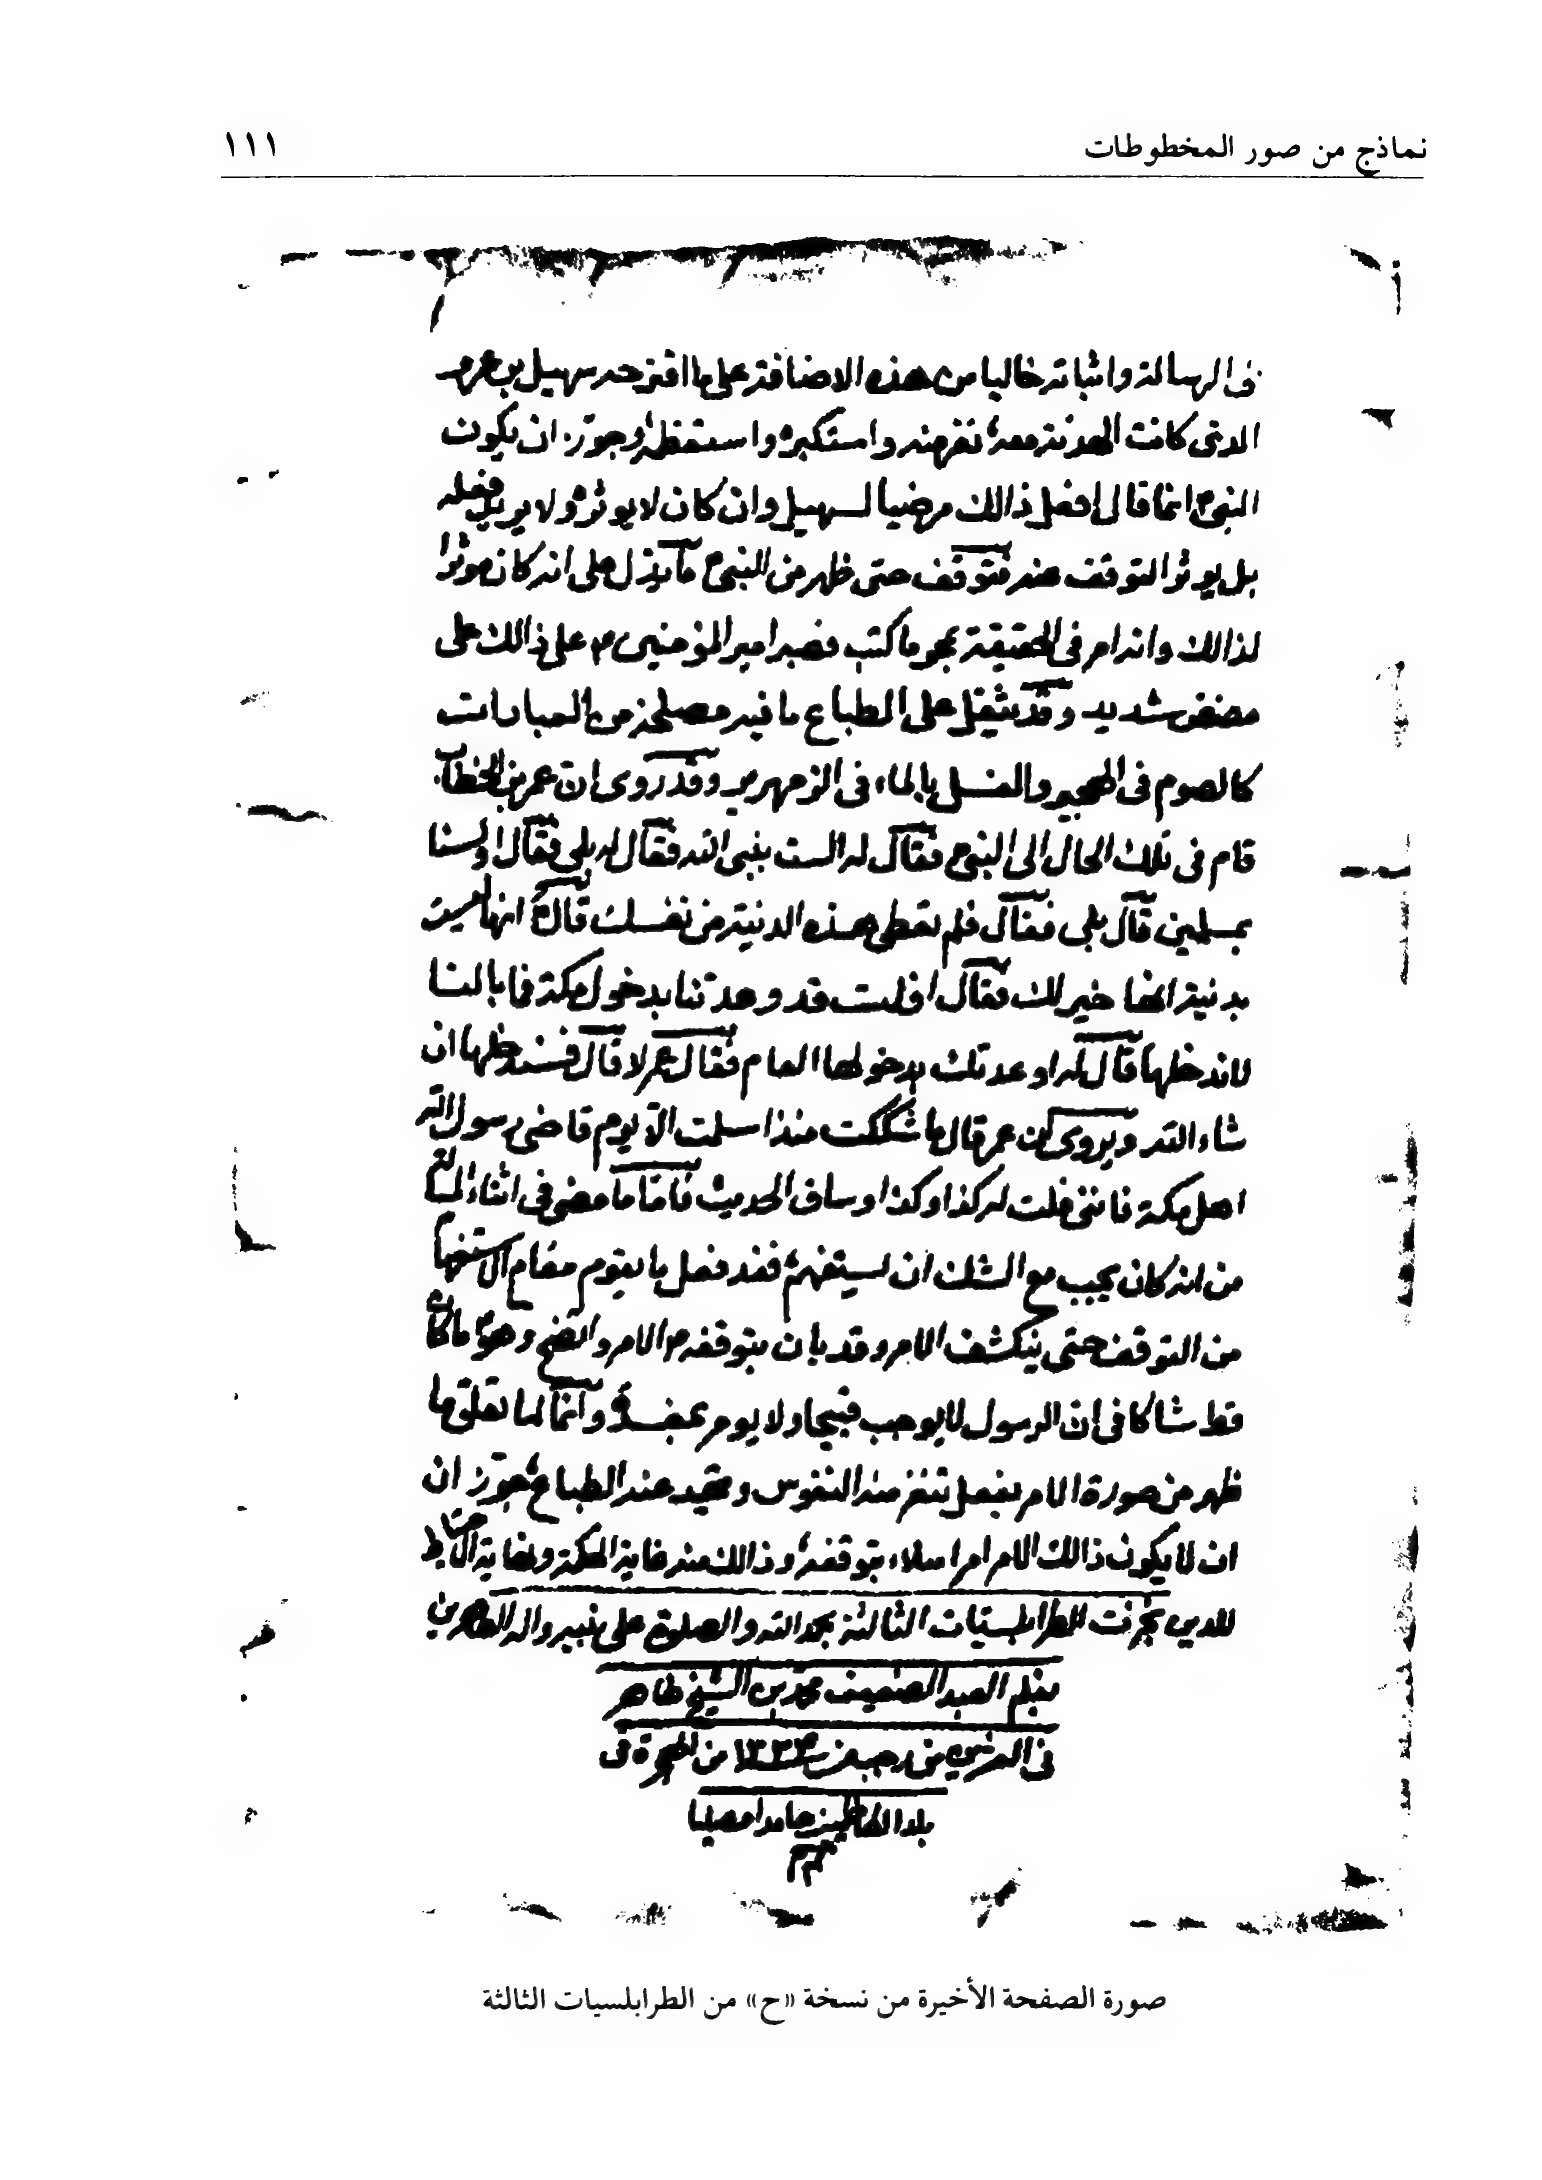 نماذج من صور المخطوطات ١١١
فى الرسالة واثباته خاليا من هذه الاضافة على ما اقترحه سهيل بن عمرو
الذى كانت الهدنة معه نفر منه واستكبره واستفظعه وجوّز ان يكون
النبى ص انما قال افعل ذالك مرضيا لسهيل وان كان لا يوثره ولا يريد فعله
بل يوثر التوقف عنه فتوقف حتى ظهر من النبى ص ما يدل على انه كان موثرا
لذالك وانه امر فى الحقيقة بمحو ما كتب فصبر امير المؤمنين ع على ذالك على
مضض شديد وقد يثقل على الطباع ما فيه مصلحة من العبادات
كالصوم فى الهجير والغسل بالماء فى الزمهرير وقد روى ان عمر بن الخطاب
قام فى تلك الحال الى النبى ص فقال له الست بنبى الله فقال له بلى فقال اولسنا
بمسلمين قال بلى فقال فلم نعطى هذه الدنية من نفسك قال انها ليست
بدنية انها خير لك فقال افليست قد وعدتنا بدخول مكة فما بالنا
لا ندخلها قال له اوعدتك بدخولها العام فقال عمر لا قال فستدخلها ان
شاء الله ويروى ان عمر قال ما شككت منذ اسلمت الا يوم قاضى رسول الله
اهل مكة فاننى قلت له كذا وكذا وساق الحديث فامّا ما مضى فى اثناء
من انه كان يجب مع الشك ان يستفهمه فقد فعل ما يقوم مقام الاستفهام
من التوقف حتى ينكشف الامر وقد بان بتوقفه الامر واتضح وهو ع ما كان
قط شاكا فى ان الرسول لا يوجب قبيحا ولا يومر بمفسدة وانما لما تعلق ما
ظهر من صورة الامر بفعل تنفر منه النفوس وتحيد عنه الطباع جوّز ان
ان لا يكون ذالك الامر امرا بتوقفه وذالك منه غاية الحكمة ونهاية الاحتياط
للدين نجزت الطرابلسيات الثالثة بحمد الله والصلوة على نبيه واله الطاهرين
بقلم العبد الضعيف محمد بن الشيخ طاهر
فى العشرين من رجب من الهجرة فى
بلد الكاظمين حامدا مصليا
صورة الصفحة الأخيرة من نسخة «ح» من الطرابلسيات الثالثة